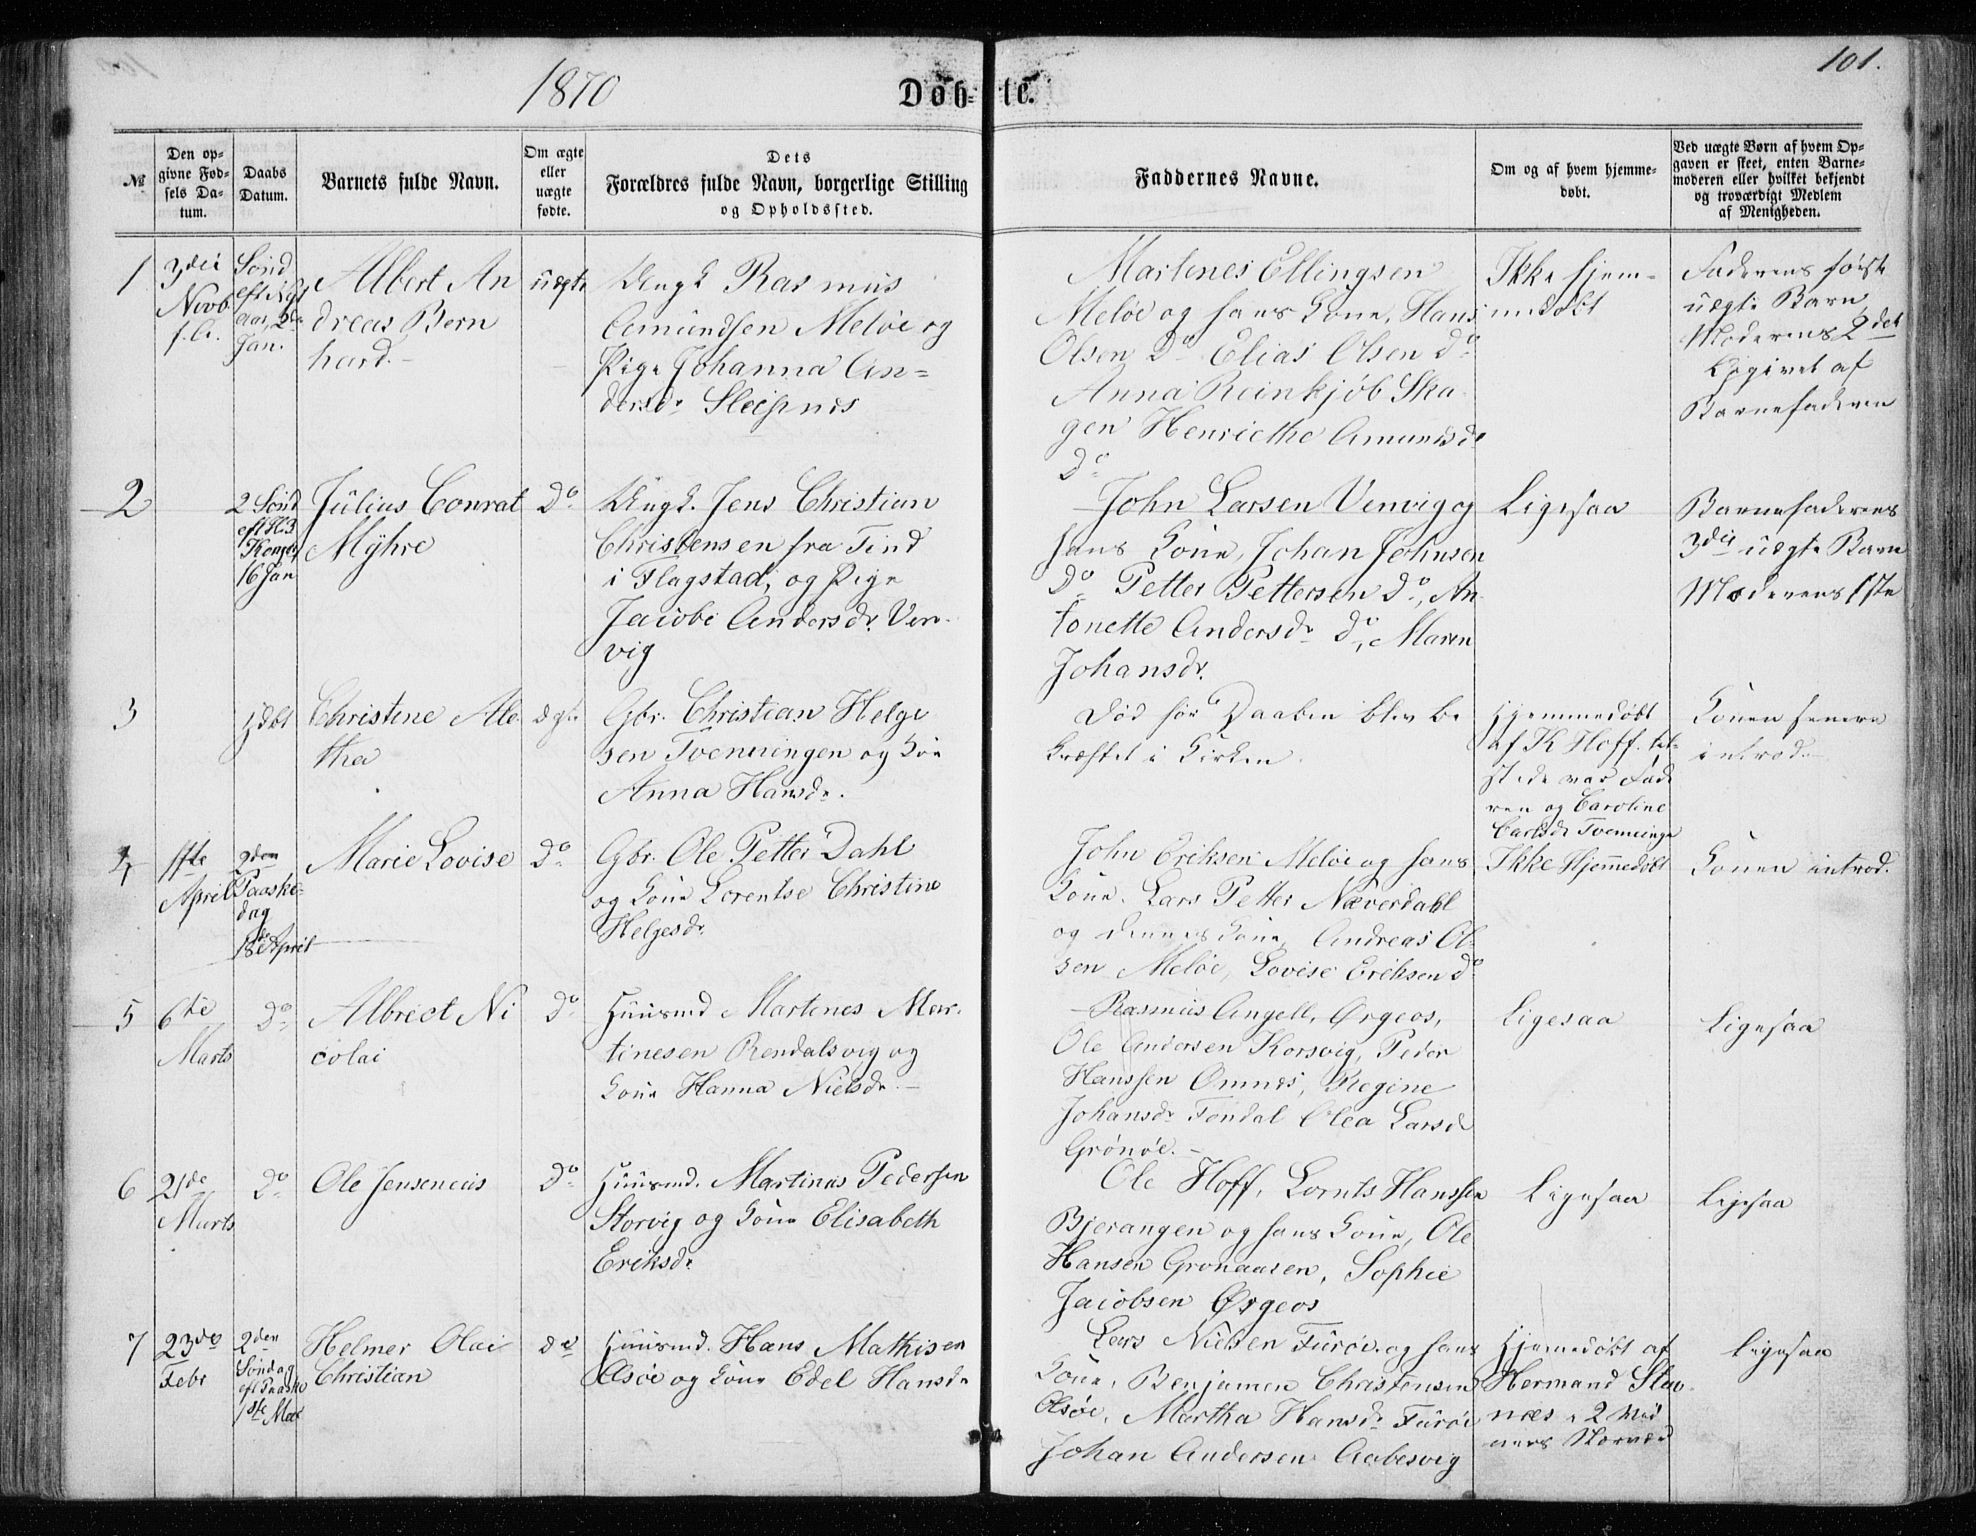 1870
Døb-te.
101.
№
Den op-
givne Fød-
sels Da-
tum.
Daabs
Datum.
Barnets fulde Navn.
Om ægte
eller
uægte
fødte.
Dets
Forældres fulde Navn, borgerlige Stilling
og Opholdssted.
Faddernes Navne.
Om og af hvem hjemme-
døbt.
Ved uægte Børn af hvem Op-
gaven er skeet, enten Barne-
moderen eller hvilket bekjendt
og troværdigt Medlem
af Menigheden.
1
3die
Novb
f. A.
Sønd
eft Nyt
aar, 2de
Jan.
Albert An
dreas Bern
hard.-
uægte
Ungk Rasmus
Amundsen Meløe og
Pige Johanna An=
dersdr Sleipnes
Martines Ellingsen
Meløe og hans Kone, Hans
Olsen Do Elias Olsen do
Anna Reinkjøb Ska
gen Henriethe Amundsdr
Do
Ikke hjem-
medøbt
Faderens første
uægte Barn
Moderens 2det
Opgivet af
Barnefaderen
2
2 Sønd
eft H. 3
Konger
16 Jan
Julius Conrat
Myhre
Do
Ungk. Jens Christian
Christensen fra Tind
i Flagstad, og Pige
Jacobe Andersdr. Ven-
vig
John Larsen Venvig og
hans Kone, Johan Johnsen
Do Petter Pettersen Do, An
tonette Andersdr Do, Maren
Johansdr.
Ligesaa
Barnefaderens
3die uægte Barn
Moderens 1ste
3
hjdbt
Christine Ale
tha
ægte
Gbr. Christian Helge
sen Tvenningen og Kone
Anna Hansdr.
Død før Daaben blev be
kræftet i Kirken
Hjemmedøbt
af K Hoff. til-
stede var Fade
ren og Caroline
Carlsdr Tvenninge
Konen senere
introd.
4
11te
April
2den
Paaske-
dag
18de April
Marie Lovise
Do
Gbr. Ole Petter Dahl
og Kone Lorentse Christine
Helgesdr.
John Eriksen Meløe og hans
Kone. Lars Petter Næverdahl
og dennes Kone, Andreas Ol-
sen Meløe, Lovise Eriksen do
Ikke Hjemmedøbt
Konen introd.
5
6te
Marts
Do
Albrect Ni
colai
Do
Huusmd Martines Mar-
tinesen Rendalsvig og
Kone Hanna Nielsdr.-
Rasmus Angell, Ørgeos,
Ole Andersen Korsvig, Peder
Hanssen Omnes, Regine
Johansdr Tøndal Olea Larsdr
Grønøe.-
Ligesaa
Ligesaa
6
21de
Marts
Do
Ole Jensenius
Do
Huusmd. Martinus Pedersen
Storvig og Kone Elisabeth
Eriksdr
Ole Hoff, Lornts Hanssen
Bjerangen og hans Kone, Ole
Hansen Grønaasen, Sophie
Jacobsen Ørgeos
Ligesaa
Ligesaa
7
23de
Febr
2den
Søndag
eft Paaske
1ste Mai
Helmer Olai
Christian
do
Huusmd. Hans Mathisen
Æsøe og Kone Edel Hansdr
Lars Nielsen Furøe og hans
Kone, Benjamin Christensen
Æsøe, Martha Hansdr Furøe
Johan Andersen Aabesvig
Hjemmedøbt af
Hermand Stav
næs
Ligesaa